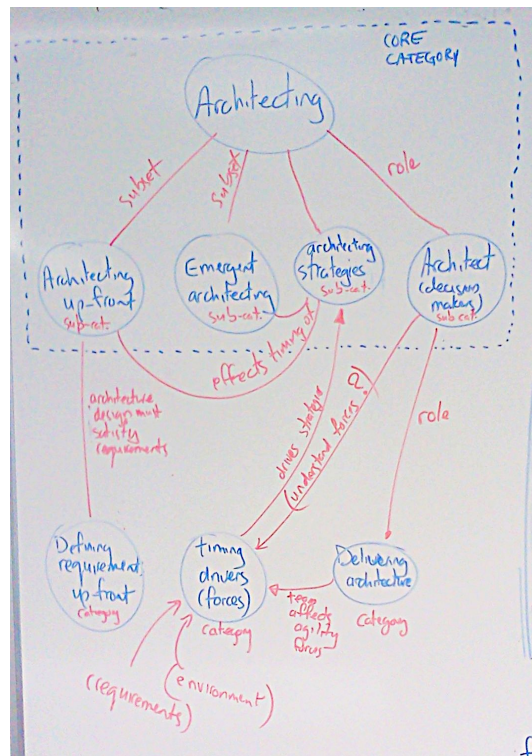 CORE
CATEGORY
Architecting
subset
subset
role
Architecting
up-front
sub-cat.
Emergent
architecting
sub-cat.
architecting
strategies
sub-cat.
Architect
(decision
makers)
sub cat.
effects timing of
architecture
design must
satisfy
requirements
drives strategies
(understand forces?)
role
Defining
requirements
up-front
category
timing
drivers
(forces)
category
Delivering
architecture
category
team
affects
agility
forces
(requirements)
(environment)